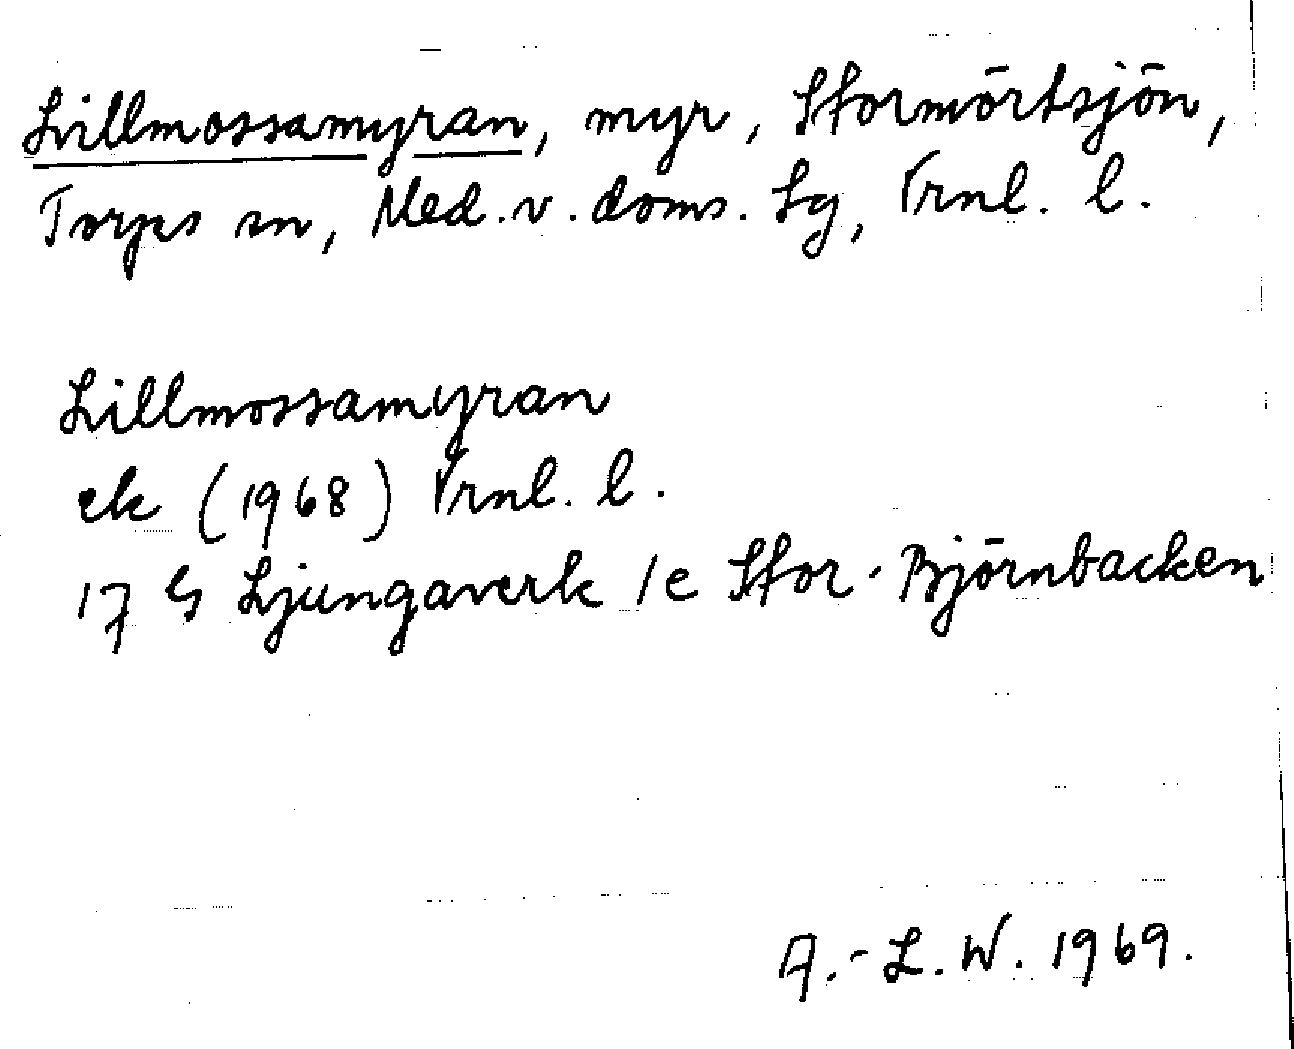 Lillmossamyran, myr, Stormörtsjön,
Torps sn, Med.v.doms. Lg, Vrnl. l.
Lillmossamyran
ek (1968) Vrnl. l.
17 G Ljungaverk 1e Stor-Björnbacken
A.-L.W. 1969.